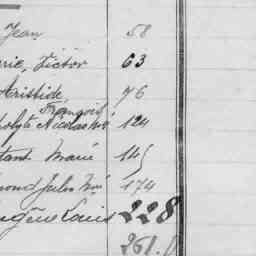 Jean 58
rie, Victor 63
Aristide 76
François
olyte Nicolas 124
tant Marie 145
mond Jules 174
ugène Louis 228
261